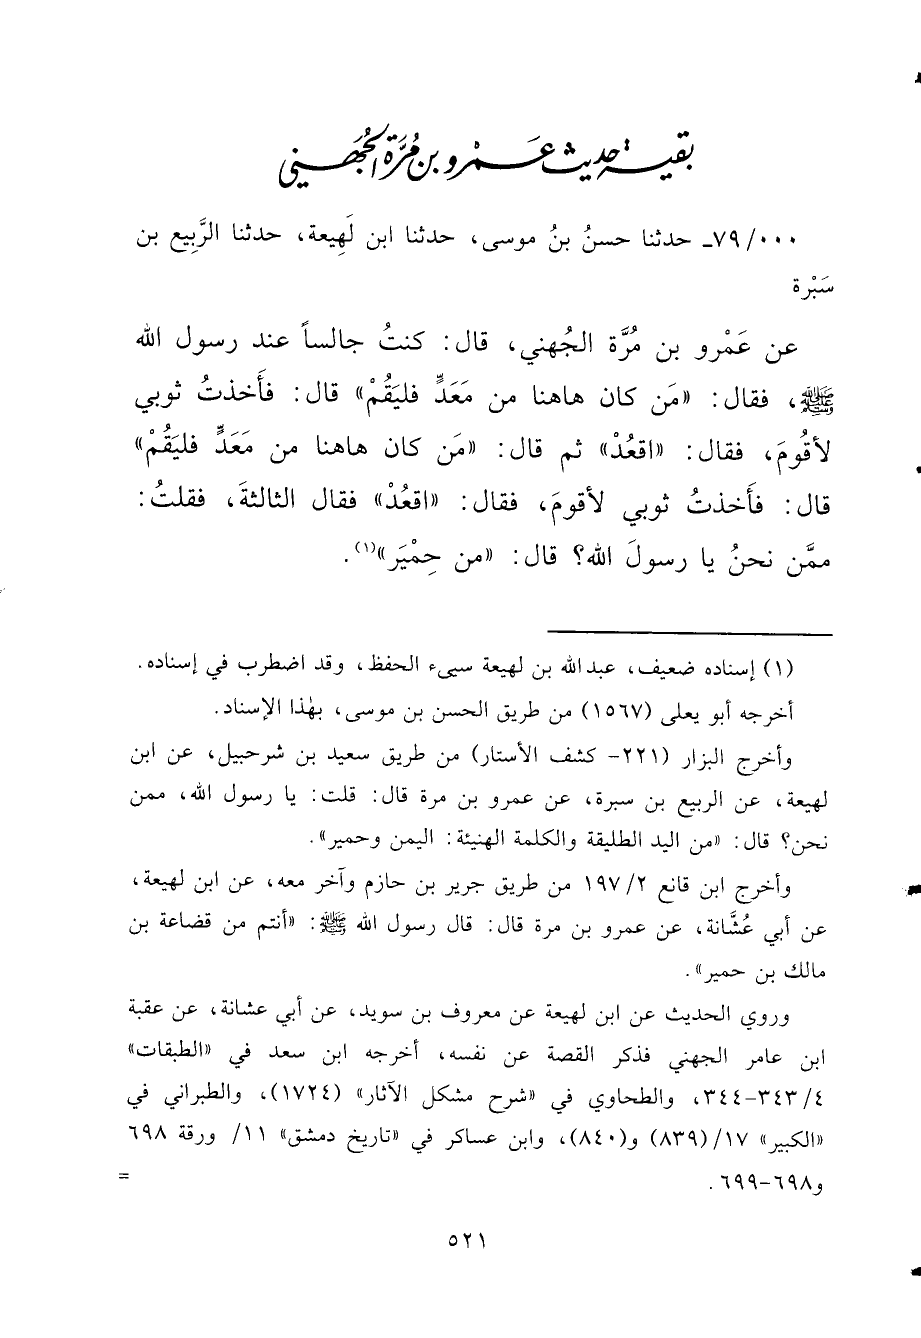 بقية حديث عَمْرو بن مُرَّة الجُهَني
٠٠٠/٧٩ـ حدثنا حسنُ بنُ موسى، حدثنا ابن لَهِيعة، حدثنا الرَّبِيع بن
سَبْرة
عن عَمْرو بن مُرَّة الجُهني، قال: كنتُ جالساً عند رسول الله
ﷺ، فقال: «مَن كان هاهنا من مَعَدٍّ فليَقُمْ» قال: فأَخذتُ ثوبي
لأقُومَ، فقال: «اقعُدْ» ثم قال: «مَن كان هاهنا من مَعَدٍّ فليَقُمْ»
قال: فأَخذتُ ثوبي لأقومَ، فقال: «اقعُدْ» فقال الثالثةَ، فقلتُ:
ممَّن نحنُ يا رسولَ الله؟ قال: «من حِمْيَر»(١).
(١) إسناده ضعيف، عبدالله بن لهيعة سيىء الحفظ، وقد اضطرب في إسناده.
أخرجه أبو يعلى (١٥٦٧) من طريق الحسن بن موسى، بهٰذا الإسناد.
وأخرج البزار (٢٢١- كشف الأستار) من طريق سعيد بن شرحبيل، عن ابن
لهيعة، عن الربيع بن سبرة، عن عمرو بن مرة قال: قلت: يا رسول الله، ممن
نحن؟ قال: «من اليد الطليقة والكلمة الهنيئة: اليمن وحمير».
وأخرج ابن قانع ١٩٧/٢ من طريق جرير بن حازم وآخر معه، عن ابن لهيعة،
عن أبي عُشَّانة، عن عمرو بن مرة قال: قال رسول الله ﷺ: «أنتم من قضاعة بن
مالك بن حمير».
وروي الحديث عن ابن لهيعة عن معروف بن سويد، عن أبي عشانة، عن عقبة
ابن عامر الجهني فذكر القصة عن نفسه، أخرجه ابن سعد في «الطبقات»
٣٤٣/٤-٣٤٤، والطحاوي في «شرح مشكل الآثار» (١٧٢٤)، والطبراني في
«الكبير» ١٧/(٨٣٩) و(٨٤٠)، وابن عساكر في «تاريخ دمشق» ١١/ ورقة ٦٩٨
و٦٩٨-٦٩٩.
=
٥٢١